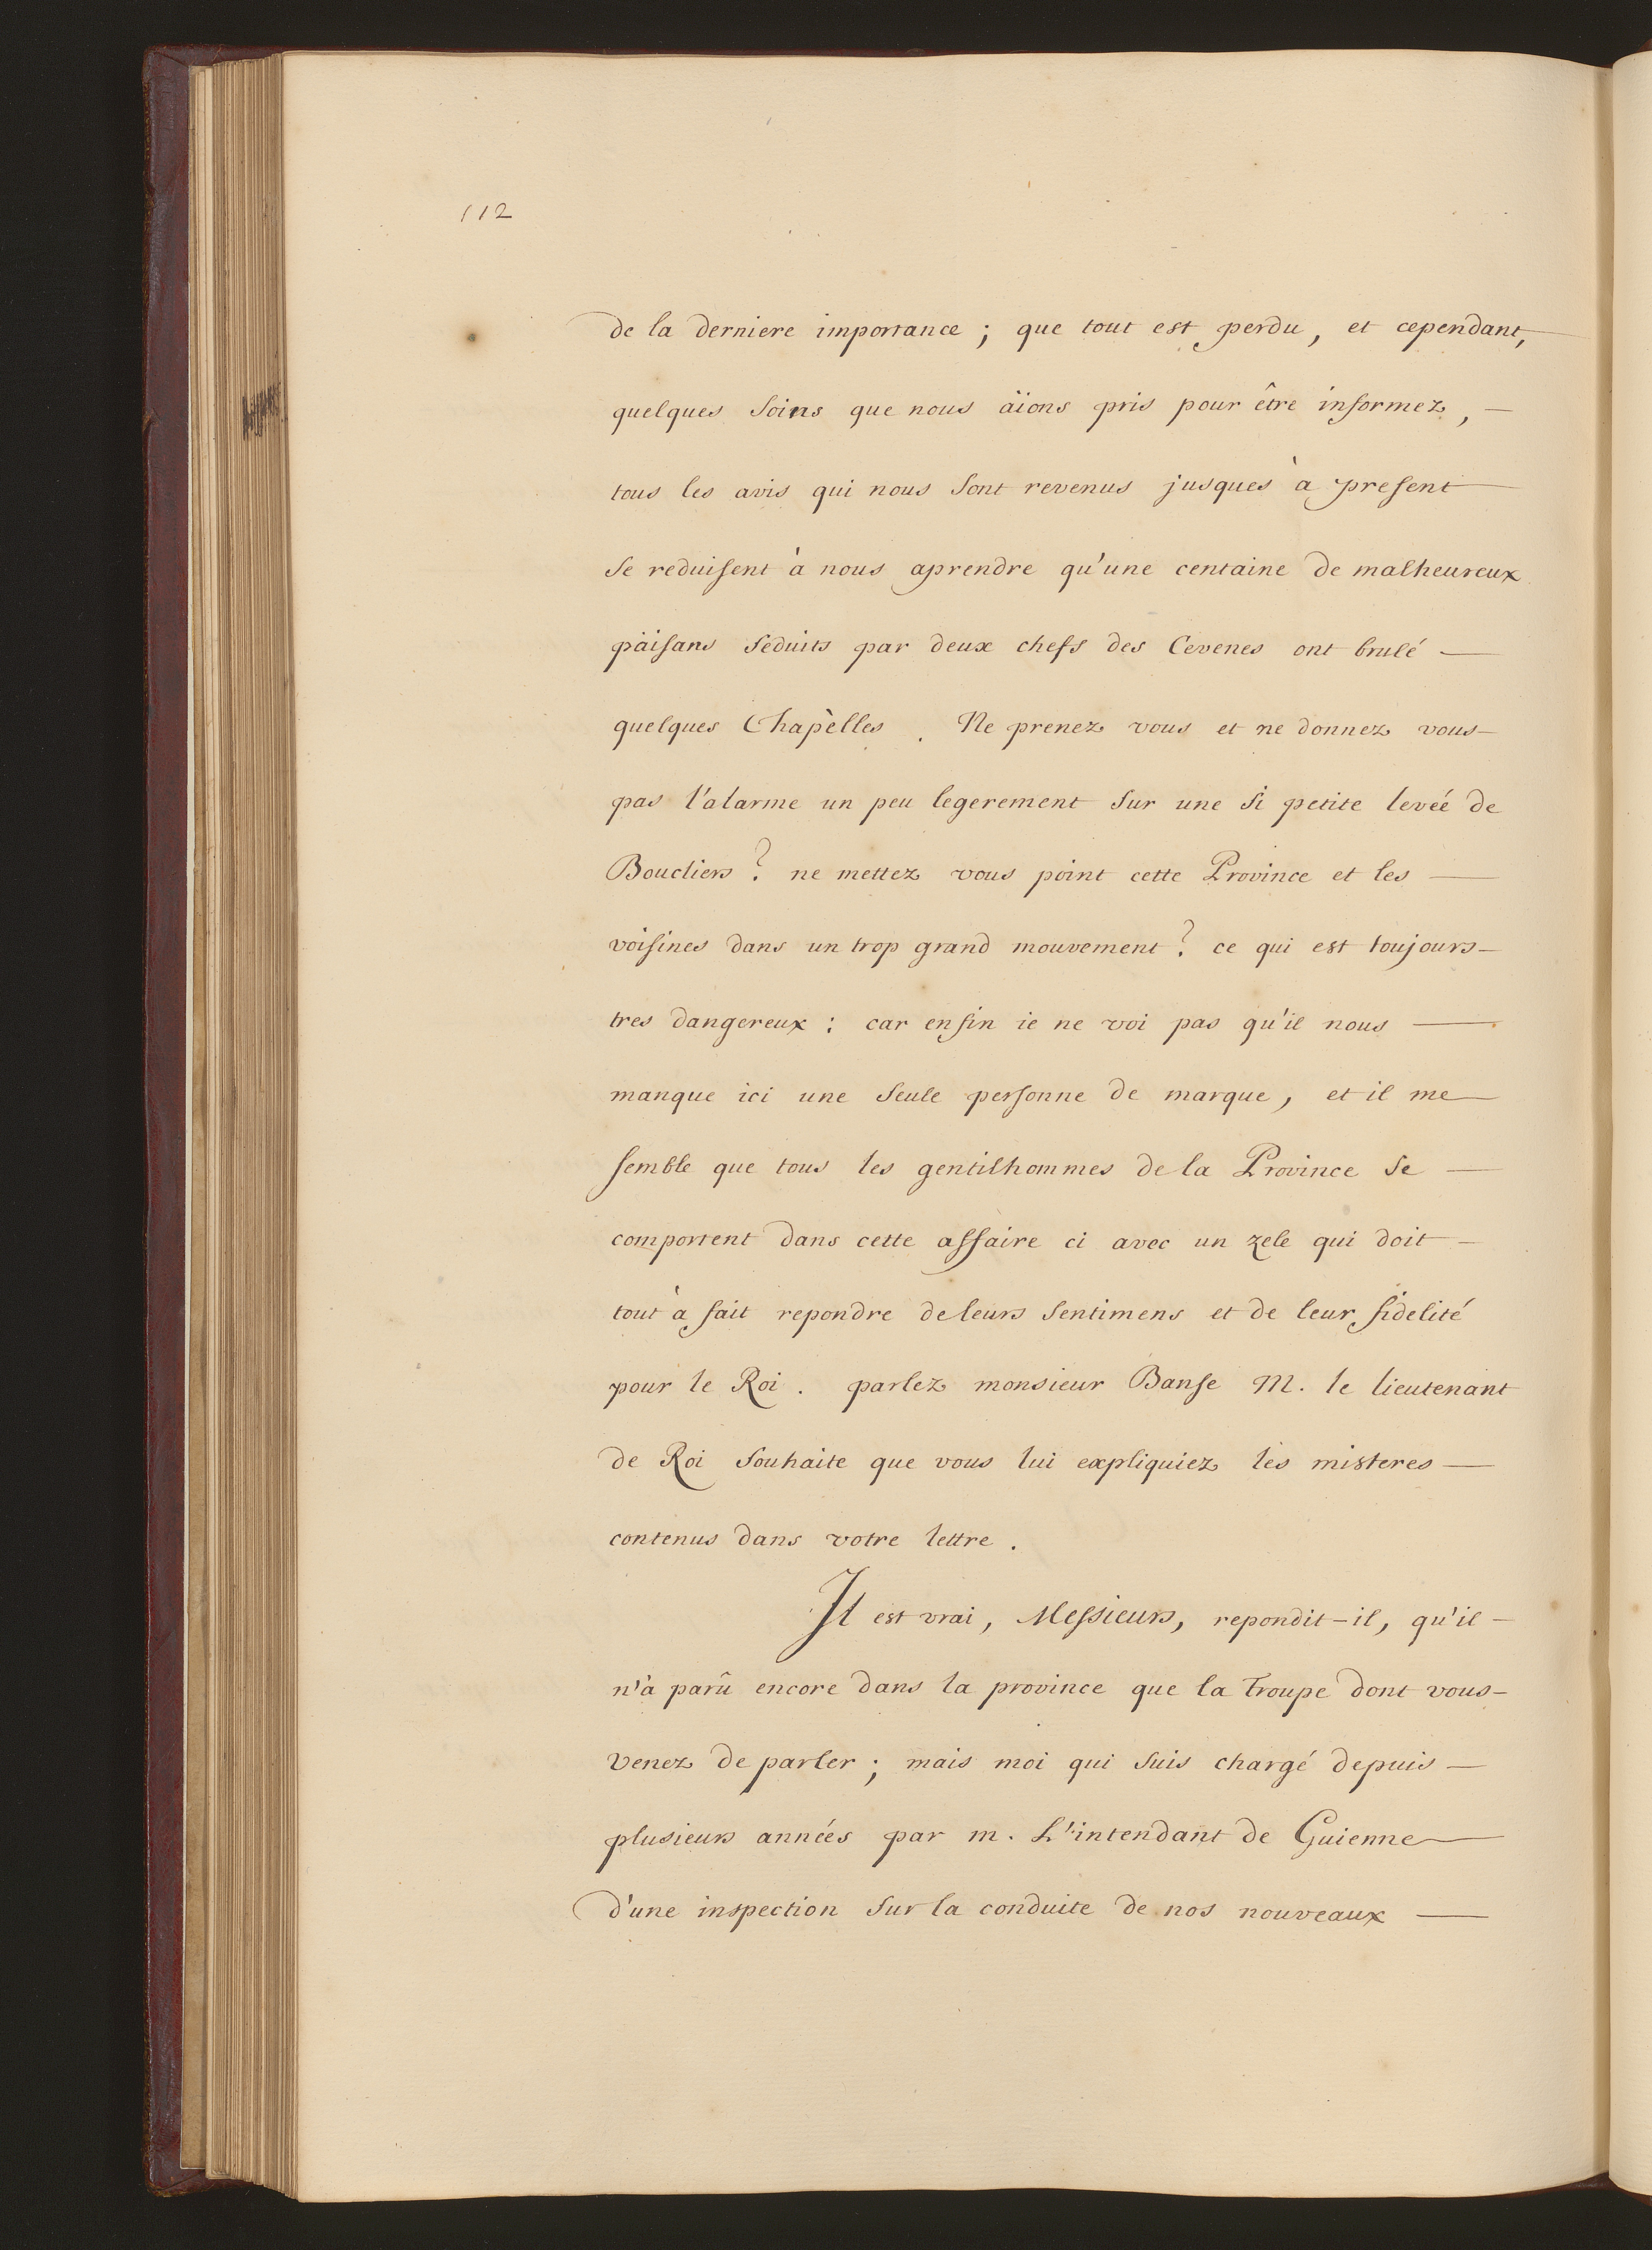 112
de la derniere importance ; que tout est perdu, et cependant,
quelques soins que nous äions pris pour être informez, —
tous les avis qui nous sont revenus jusques à present —
se reduisent à nous aprendre qu'une centaine de malheureux
päisans séduits par deux chefs des Cevenes ont brulé —
quelques Chapèlles . Ne prenez vous et ne donnez vous —
pas l'alarme un peu legerement sur une si petite levéé de
Boucliers ? ne mettez vous point cette Province et les —
voisines dans un trop grand mouvement ? ce qui est toujours —
tres dangereux : car enfin ie ne voi pas qu'il nous —
manque ici une seule personne de marque, et il me —
semble que tous les gentilhommes de la Province se —
comportent dans cette affaire ci avec un zele qui doit —
tout à fait repondre de leurs sentimens et de leur fidelité
pour le Roi . parlez monsieur Banse M. le lieutenant
de Roi souhaite que vous lui expliquiez les misteres —
contenus dans votre lettre .
Il est vrai, Messieurs, repondit-il, qu'il —
n'à parû encore dans la province que la Troupe dont vous —
venez de parler ; mais moi qui suis chargé depuis —
plusieurs annéés par m. L'intendant de Guienne —
d'une inspection sur la conduite de nos nouveaux —